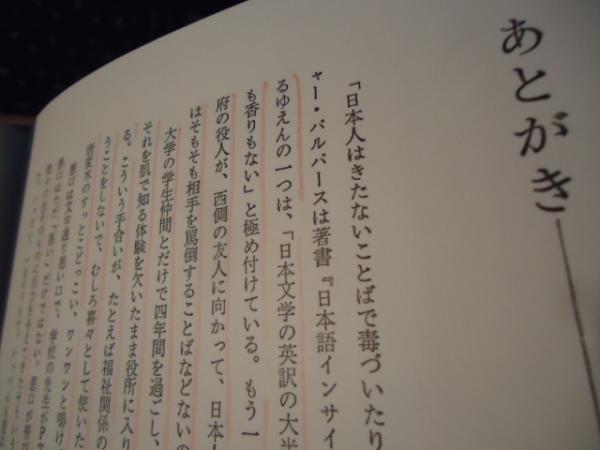 あとがき
「日本人はきたないことばで毒づいたり
ャー・パルバースは著書『日本語インサイ
るゆえんの一つは、「日本文学の英訳の大半
も香りもない」と極め付けている。もう一
府の役人が、西側の友人に向かって、日本
はそもそも相手を罵倒することばなどないの
大学の学生仲間とだけで四年間を過ごし、
それを肌で知る体験を欠いたまま役所に入り
る。こういう手合いが、たとえば福祉関係の
うことをしないで、むしろ喜々として使いた
唐変木のすっとこどっこい、ワンワンと鳴け
悪口は文字通り悪い口で、学校の先生がP
悪口はただ「悪い」だけではない。悪口が